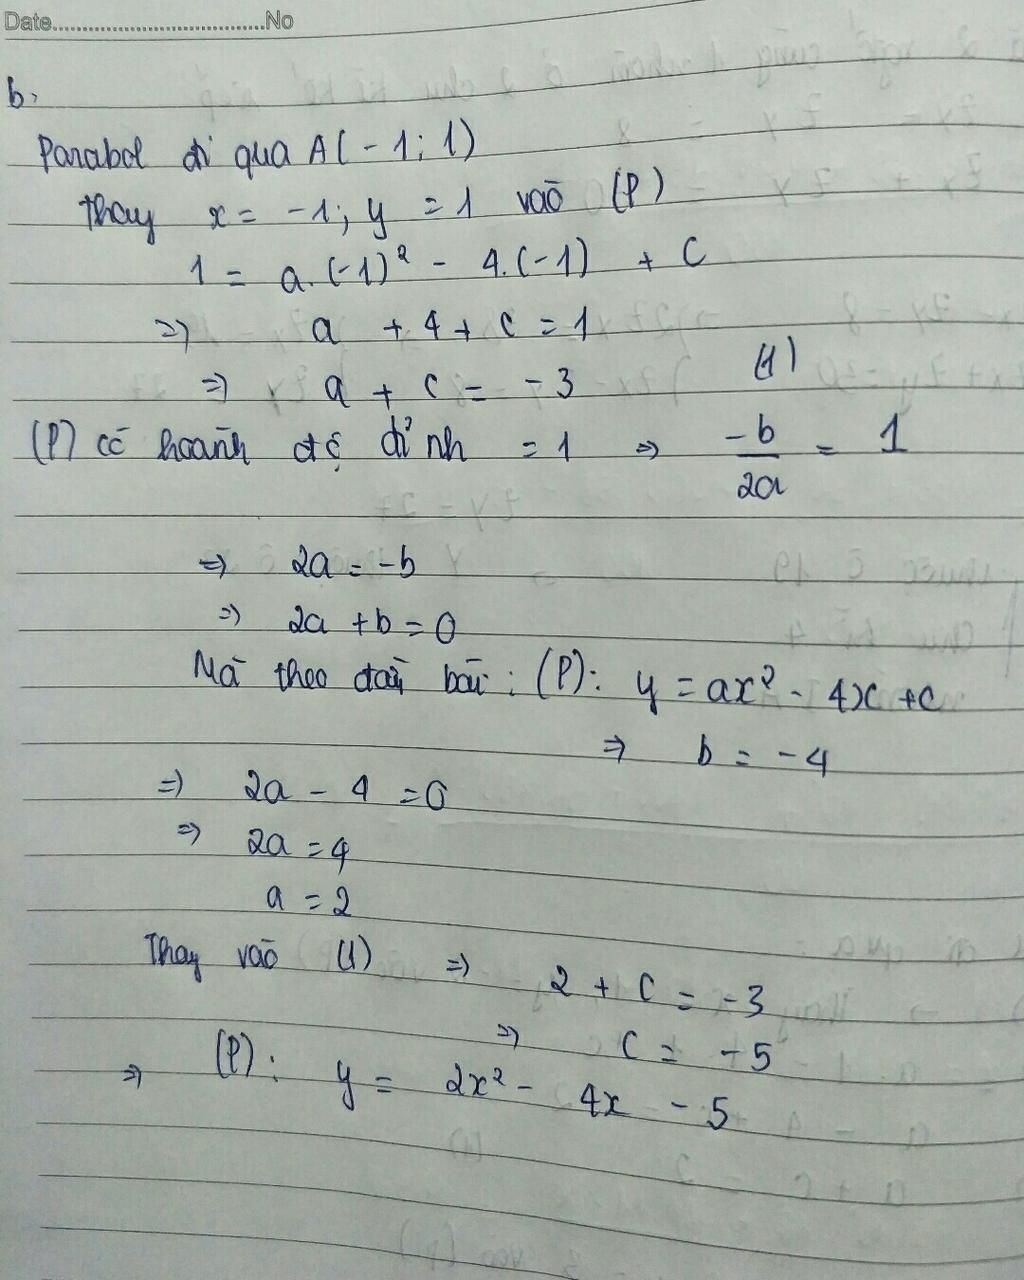 Date..................................No
b,
Parabol đi qua A(-1; 1)
Thay x = -1; y = 1 vào (P)
1 = a.(-1)² - 4.(-1) + C
=> a + 4 + c = 1
=> a + c = -3 (1)
(P) có hoành độ đỉnh = 1 => -b/2a = 1
=> 2a = -b
=> 2a + b = 0
Mà theo đầu bài : (P): y = ax² - 4x + c
=> b = -4
=> 2a - 4 = 0
=> 2a = 4
a = 2
Thay vào (1) => 2 + c = -3
=> c = -5
=> (P): y = 2x² - 4x - 5